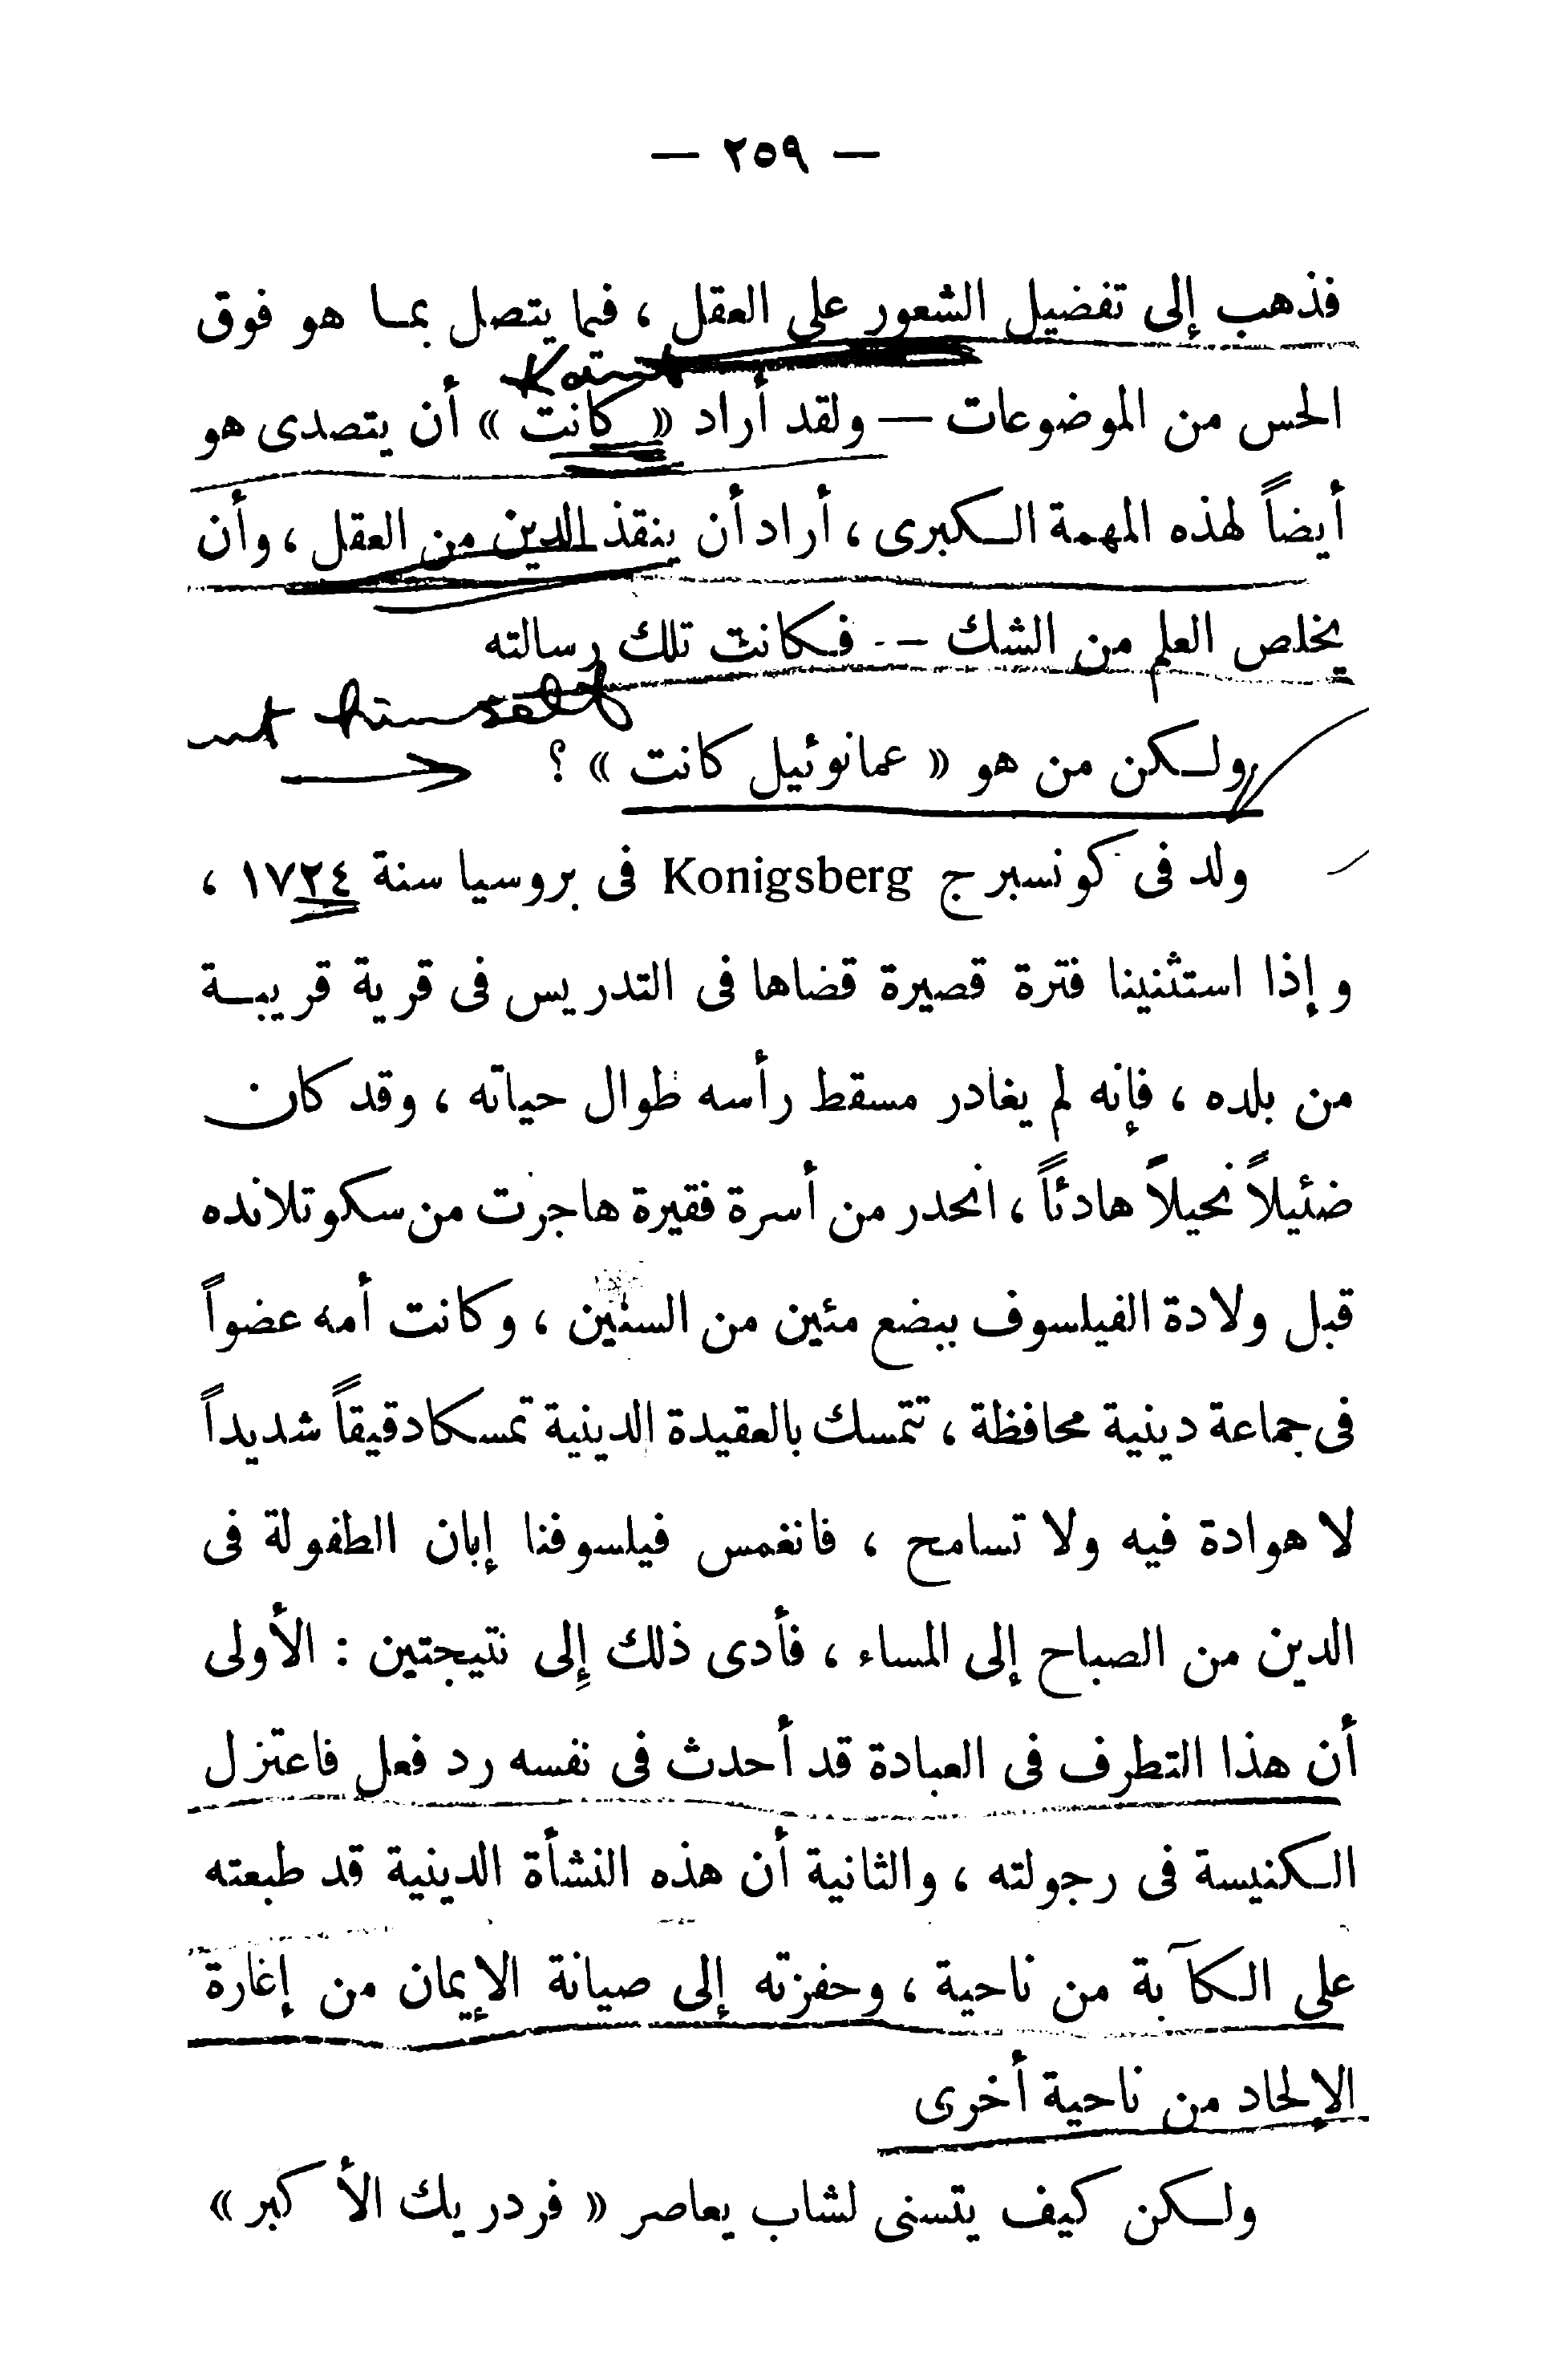 — ٢٥٩ —
فذهب إلى تفضيل الشعور على العقل ، فيما يتصل بما هو فوق
Kant
الحس من الموضوعات — ولقد أراد « كانت » أن يتصدى هو
أيضاً لهذه المهمة الكبرى ، أراد أن ينقذ الدين من العقل ، وأن
يخلص العلم من الشك — فكانت تلك رسالته
himself
ولكن من هو « عمانوئيل كانت » ؟
ولد فى كونسبرج Konigsberg فى بروسيا سنة ١٧٢٤ ،
وإذا استثنينا فترة قصيرة قضاها فى التدريس فى قرية قريبة
من بلده ، فإنه لم يغادر مسقط رأسه طوال حياته ، وقد كان
ضئيلاً نحيلاً هادئاً ، انحدر من أسرة فقيرة هاجرت من سكوتلانده
قبل ولادة الفيلسوف ببضع مئين من السنين ، وكانت أمه عضواً
فى جماعة دينية محافظة ، تتمسك بالعقيدة الدينية تمسكا دقيقاً شديداً
لا هوادة فيه ولا تسامح ، فانغمس فيلسوفنا إبان الطفولة فى
الدين من الصباح إلى المساء ، فأدى ذلك إلى نتيجتين : الأولى
أن هذا التطرف فى العبادة قد أحدث فى نفسه رد فعل فاعتزل
الكنيسة فى رجولته ، والثانية أن هذه النشأة الدينية قد طبعته
على الكآبة من ناحية ، وحفزته إلى صيانة الإيمان من إغارة
الإلحاد من ناحية أخرى
ولكن كيف يتسنى لشاب يعاصر « فردريك الأكبر »